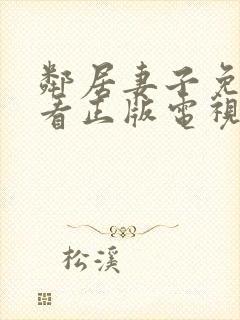 鄰居妻子免
看正版電視
松溪